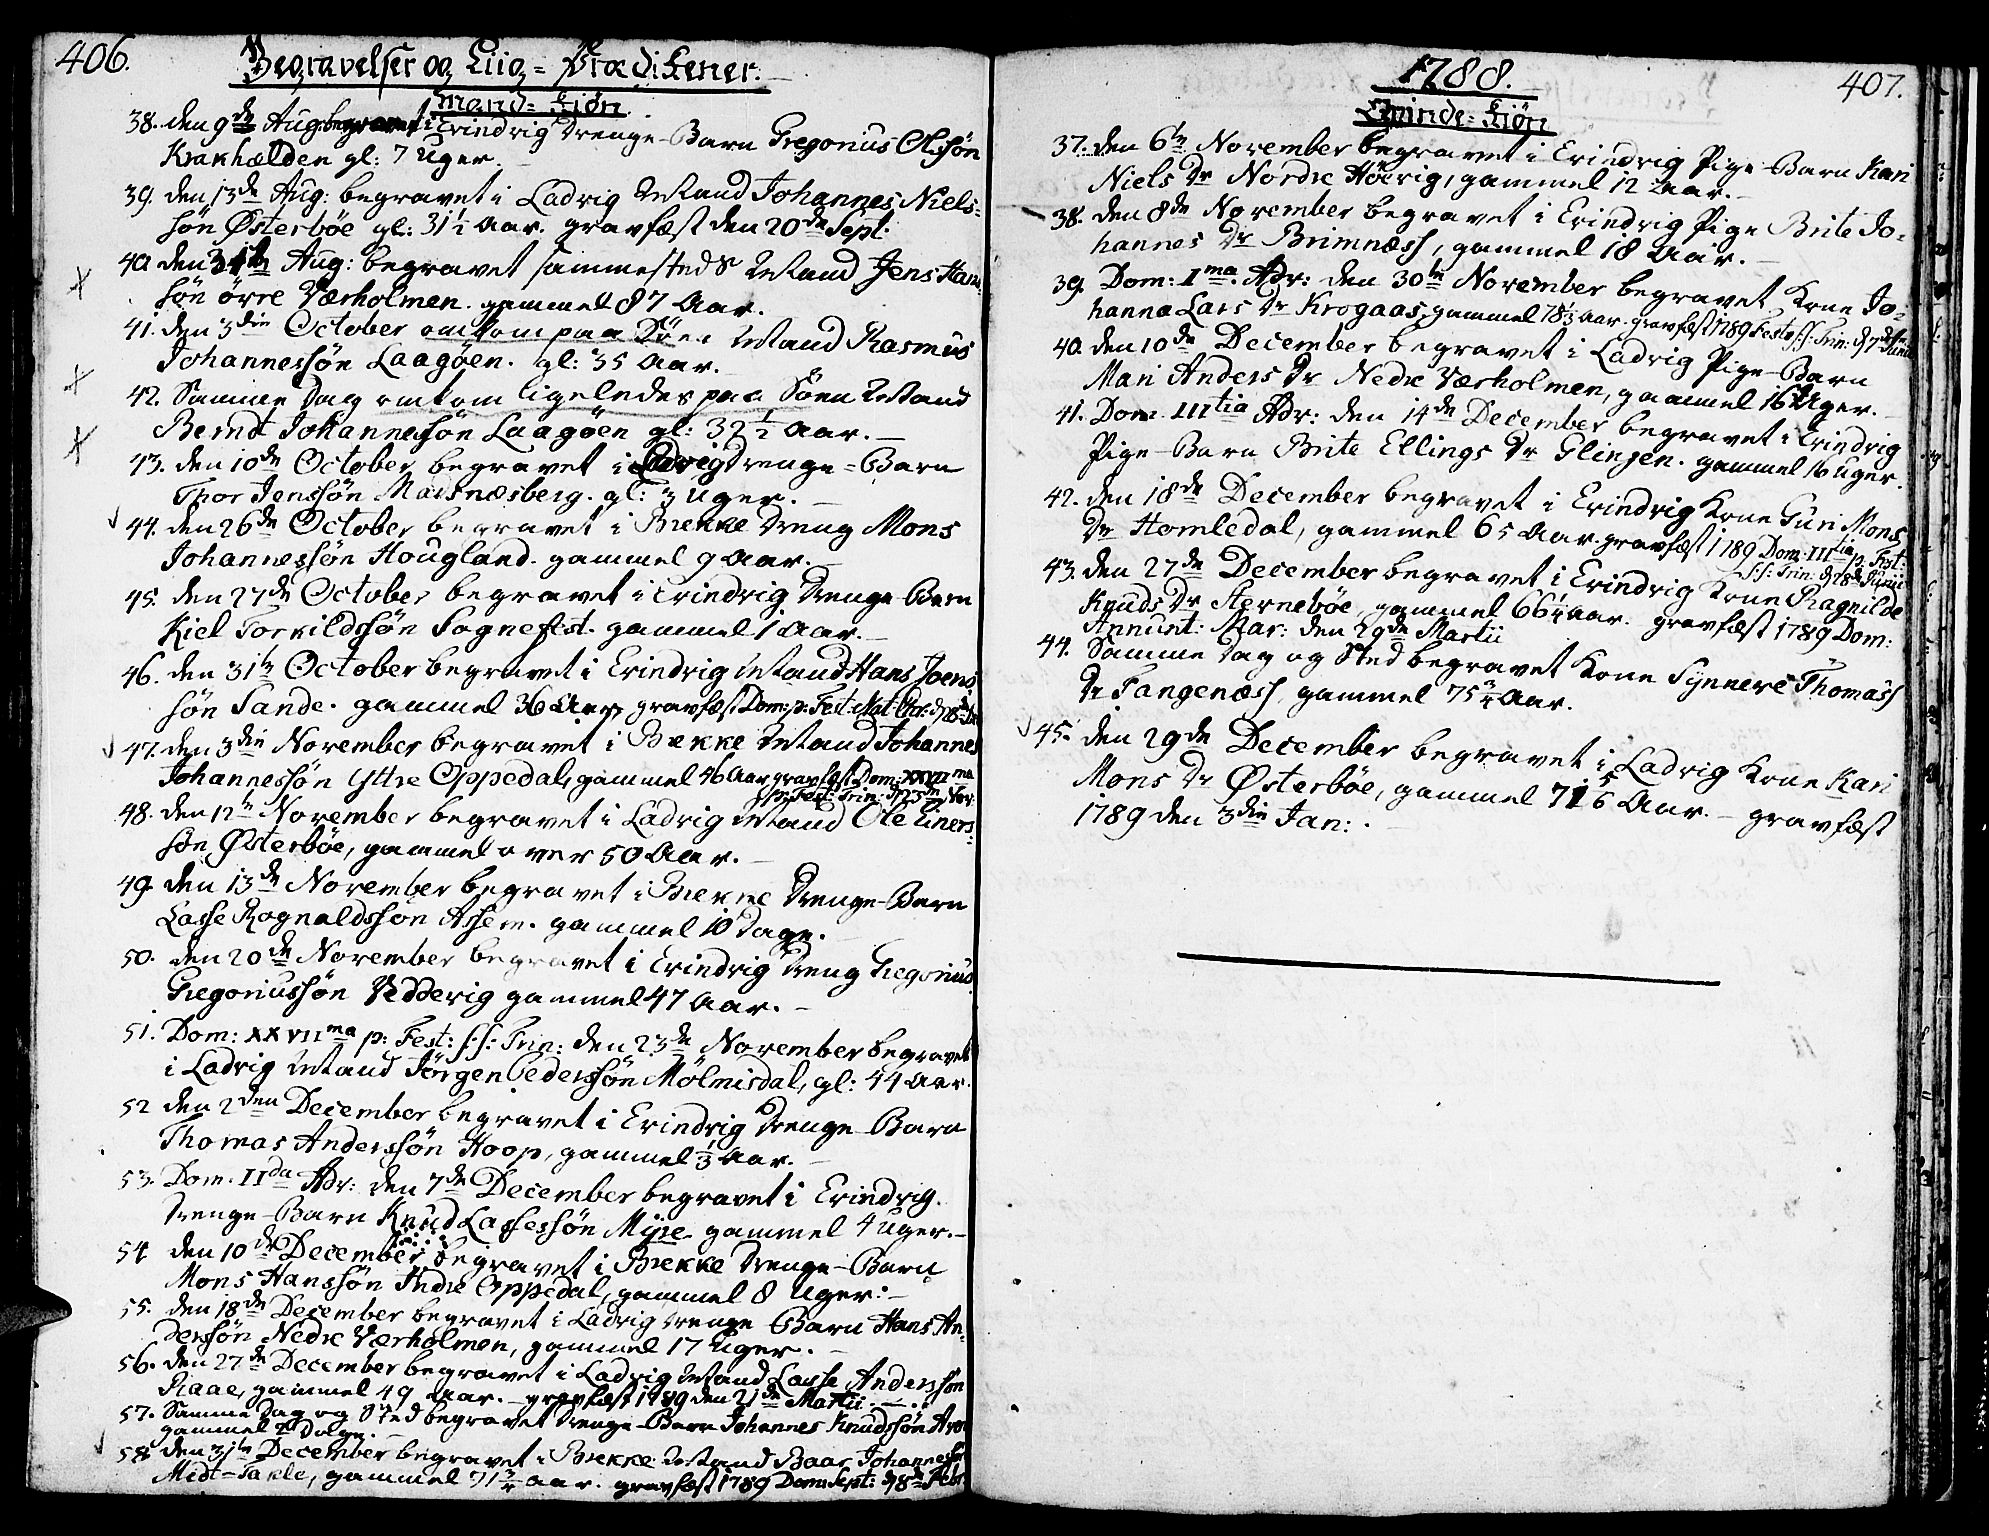 406.
Begravelser og Liig-Prædikener.
Mand-Kiøn.
38. den 9de Aug: begravet i Evindvig Drenge-Barn Gregorius Olssøn
Krakhælden gl: 7 Uger.
39. den 13de Aug: begravet i Ladvig Mand Johannes Niels-
søn Østerbøe gl: 31 1/2 Aar. gravfæst den 20de Sept.
40. den 31te Aug: begravet sammesteds Mand Jens Hans-
søn øvre Værholmen. gammel 87 Aar.
41. den 3die October omkom paa Søen Mand Rasmus
Johannessøn Laagøen. gl: 35 Aar.
42. Samme Dag omkom ligeledes paa Søen Mand
Berndt Johannessøn Laagøen gl: 32 1/2 Aar.
43. den 10de October begravet i Ladvig Drenge-Barn
Thor Jenssøn Marsnæsberg. gl: 3 Uger.
44. den 26de October begravet i Brekke Dreng Mons
Johannessøn Hougland. gammel 9 Aar.
45. den 27de October begravet i Evindvig Drenge-Barn
Kiel Torkildssøn Sognefest. gammel 1 Aar.
46. den 31te October begravet i Evindvig Mand Hans Joens
søn Sande. gammel 36 Aar, gravfæst Dom: p: Fest: Nat: Chr: d. 28de Dec
47. den 3die November begravet i Brekke Mand Johannes
Johannessøn Yttre Oppedal, gammel 46 Aar gravfæst Dom: XXVIIma
p: Fest: Trin: d. 23de Nov:
48. den 12te November begravet i Ladvig Mand Ole Einers-
søn Østerbøe, gammel over 50 Aar.
49. den 13de November begravet i Brekke Drenge-Barn
Lasse Rognaldssøn Assem. gammel 10 Dage.
50. den 20de November begravet i Evindvig Dreng Gregorius
Gregoriussøn Vedvig gammel 47 Aar.
51. Dom: XXVIIma p: Fest: s:s: Trin: den 23de November begravet
i Ladvig Mand Jørgen Pederssøn Mølmisdal, gl: 44 Aar.
52 den 2den December begravet i Evindvig Drenge-Barn
Thomas Anderssøn Hoop, gammel 1/3 Aar.
53. Dom. IIda Adv: den 7de December begravet i Evindvig.
Drenge-Barn Knud Lassessøn Myre gammel 4 Uger.
54 den 10de December begravet i Brekke Drenge-Barn
Mons Hanssøn Indre Oppedal, gammel 8 Uger.
55. den 18de December begravet i Ladvig Drenge Barn Hans An-
derssøn Nedre Værholmen, gammel 17 Uger.
56. den 27de December begravet i Ladvig Mand Lasse Anderssøn
Risae, gammel 49 Aar. gravfæst 1789 den 21de Martii.
57. Samme Dag og Sted begravet Drenge-Barn Johannes Knudssøn
gammel Dage.
58 den 31te December begravet i Brekke Mand Baar Johannessøn
Midt-Takle, gammel 71 3/4 Aar. gravfæst 1789 Dom: Sept: d. 8de Febr
1788.
407.
Qvinde-Kiøn
37. den 6te November begravet i Evindvig Pige-Barn Kari
Niels Dr Nordre Høevig, gammel 12 Aar.
38. den 8de November begravet i Evindvig Pige Brite Jo-
hannes Dr Brimnæss, gammel 18 Aar.
39. Dom: Ima Adv: den 30te November begravet Kone Jo-
hanna Lars Dr Krogaas gammel 78 1/3 Aar. gravfæst 1789 Festo s:s: Trin: d. 7de Junii
40. den 10de December begravet i Ladvig Pige-Barn
Mari Anders Dr Nedre Værholmen, gammel 16 Uger.
41. Dom. IIItia Adv: den 14de December begravet i Evindvig
Pige-Barn Brite Ellings Dr Glinjen. gammel 16 Uger.
42. den 18de December begravet i Evindvig Kone Guri Mons
Dr Homledal, gammel 65 Aar. gravfæst 1789 Dom: IIItia p: Fest:
s:s: Trin: d. 28de Junii
43. den 27de December begravet i Evindvig Kone Ragnilde
Knuds Dr Sternebøe, gammel 66 1/4 Aar. gravfæst 1789 Dom:
Annunt: Mar: den 29de Martii
44. Samme Dag og Sted begravet Kone Synneve Thomass
Dr Tangenæss, gammel 75 3/4 Aar.
45. den 29de December begravet i Ladvig Kone Kari
Mons Dr Østerbøe, gammel 71 5/6 Aar. gravfæst
1789 den 3die Jan: